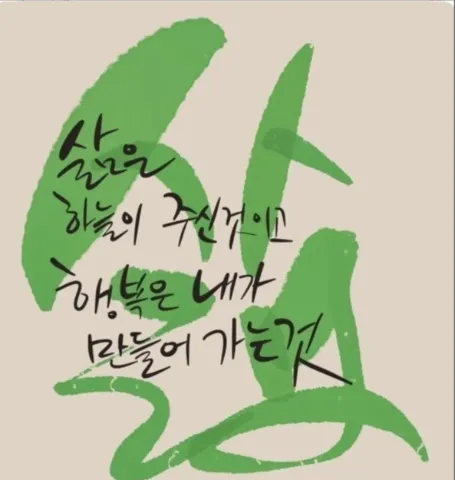 삶
삶은
하늘이 주신것이고
행복은 내가
만들어 가는것